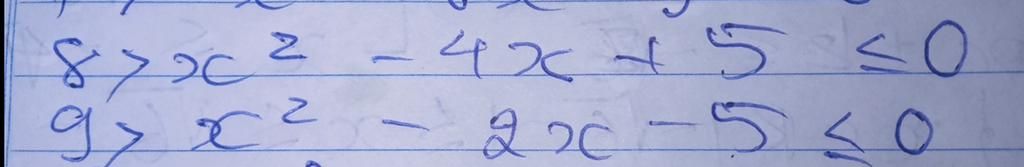 8> x² - 4x + 5 ≤ 0
9> x² - 2x - 5 ≤ 0